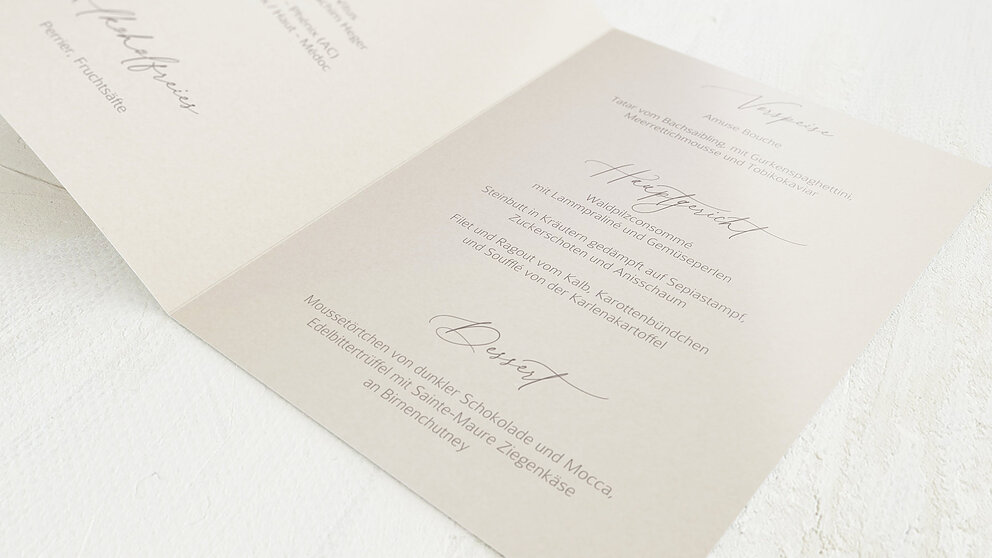 Heger
- Phénix (AC)
/ Haut - Médoc
Perrier, Fruchtsäfte
Vorspeise
Amuse Bouche
Tatar vom Bachsaibling, mit Gurkenspaghettini,
Meerrettichmousse und Tobikokaviar
Hauptgericht
Waldpilzconsommé
mit Lammpraliné und Gemüseperlen
Steinbutt in Kräutern gedämpft auf Sepiastampf,
Zuckerschoten und Anisschaum
Filet und Ragout vom Kalb, Karottenbündchen
und Soufflé von der Karlenakartoffel
Dessert
Moussetörtchen von dunkler Schokolade und Mocca,
Edelbittertrüffel mit Sainte-Maure Ziegenkäse
an Birnenchutney